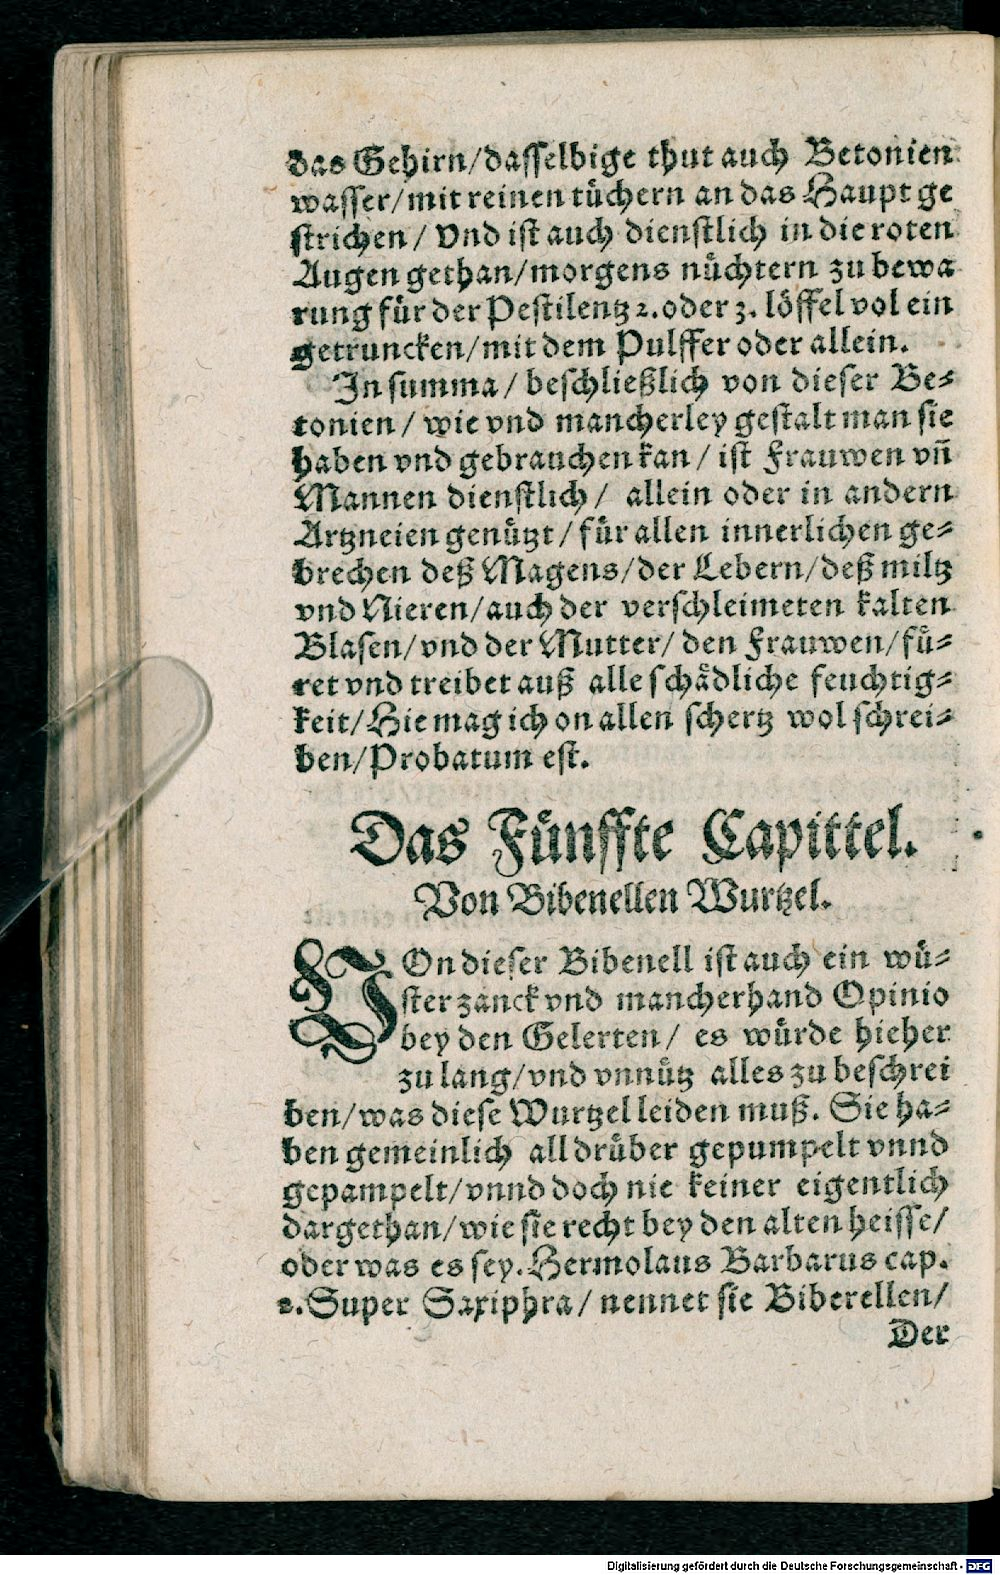 das Gehirn/dasselbige thut auch Betonien
wasser/mit reinen tüchern an das Haupt ge
strichen/ Vnd ist auch dienstlich in die roten
Augen gethan/morgens nüchtern zu bewa
rung für der Pestilentz 2. oder 3. löffel vol ein
getruncken/mit dem Pulffer oder allein.
In summa/ beschließlich von dieser Be-
tonien/ wie vnd mancherley gestalt man sie
haben vnd gebrauchen kan/ ist Frauwen vñ
Mannen dienstlich/ allein oder in andern
Artzneien genützt/für allen innerlichen ge-
brechen deß Magens/der Lebern/deß miltz
vnd Nieren/auch der verschleimeten kalten
Blasen/vnd der Mutter/ den Frauwen/fü-
ret vnd treibet auß alle schädliche feuchtig-
keit/Hie mag ich on allen schertz wol schrei-
ben/Probatum est.
Das Fünffte Capittel.
Von Bibenellen Wurtzel.
VOn dieser Bibenell ist auch ein wü-
ster zanck vnd mancherhand Opinio
bey den Gelerten/ es würde hieher
zu lang/vnd vnnütz alles zu beschrei
ben/was diese Wurtzel leiden muß. Sie ha-
ben gemeinlich all drüber gepumpelt vnnd
gepampelt/vnnd doch nie keiner eigentlich
dargethan/wie sie recht bey den alten heisse/
oder was es sey. Hermolaus Barbarus cap.
2. Super Saxiphra/ nennet sie Biberellen/
Der
Digitalisierung gefördert durch die Deutsche Forschungsgemeinschaft - DFG